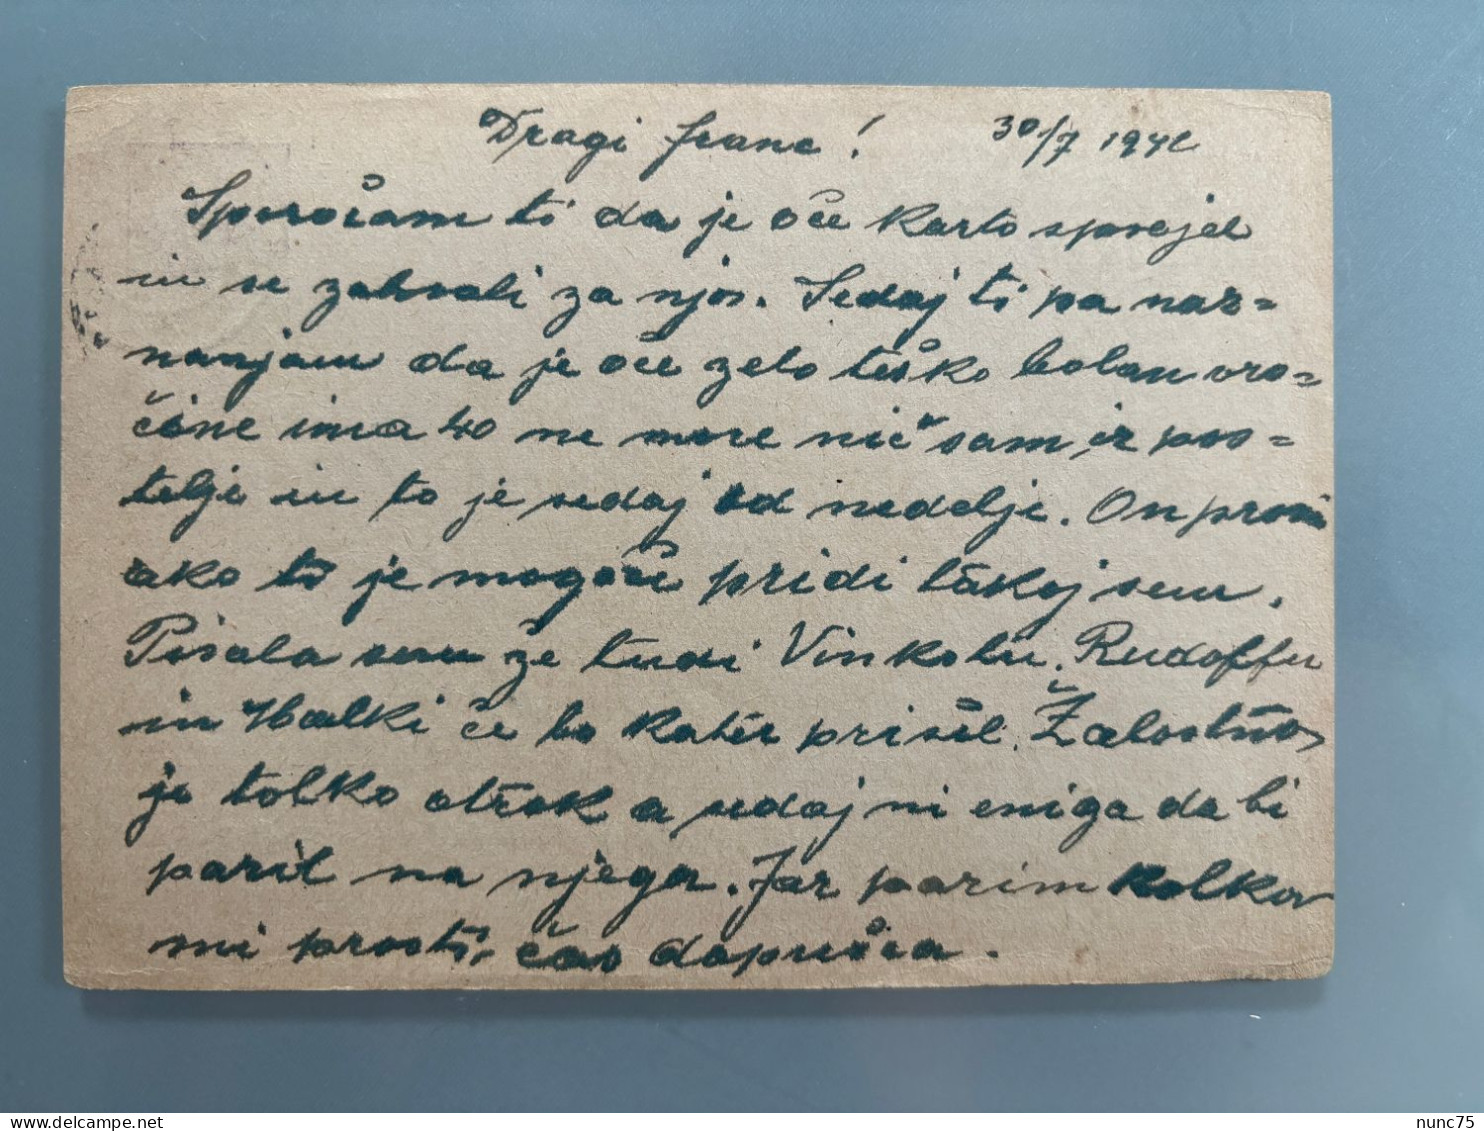 Dragi Franc! 30/7 1942
Sporočam ti da je oče karto sprejel
in se zahvali za njo. Sedaj ti pa naz=
nanjam da je oče zelo teško bolan vro=
čine ima 40 ne more nič sam iz pos=
telje in to je sedaj od nedelje. On prosi
ako to je mogoče pridi takoj sem.
Pisala sem že tudi Vinkotu. Rudolffu
in Malki če bo kater prišel. Žalostno
je tolko otrok a sedaj ni eniga da bi
pazil na njega. Jaz pazim kolko
mi prosti čas dopuša.
nunc75